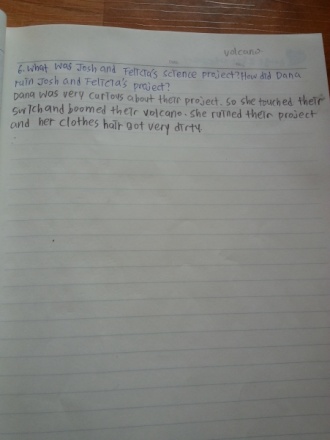 volcano
6. What was Josh and Felicia's science project? How did Dana
ruin Josh and Felicia's project?
Dana was very curious about their project. So she touched their
swich and boomed their volcano. She ruined their project
and her clothes hair got very dirty.